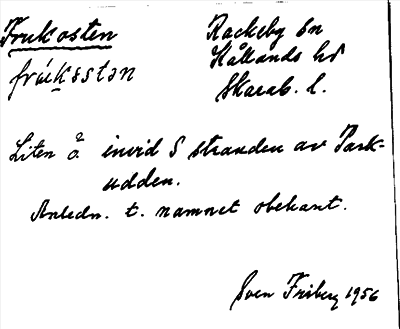 Frukosten
frúksstən
Rackeby sn
Kållands hd
Skarab. l.
Liten ö invid S stranden av Park-
udden.
Anledn. t. namnet obekant.
Sven Friberg 1956